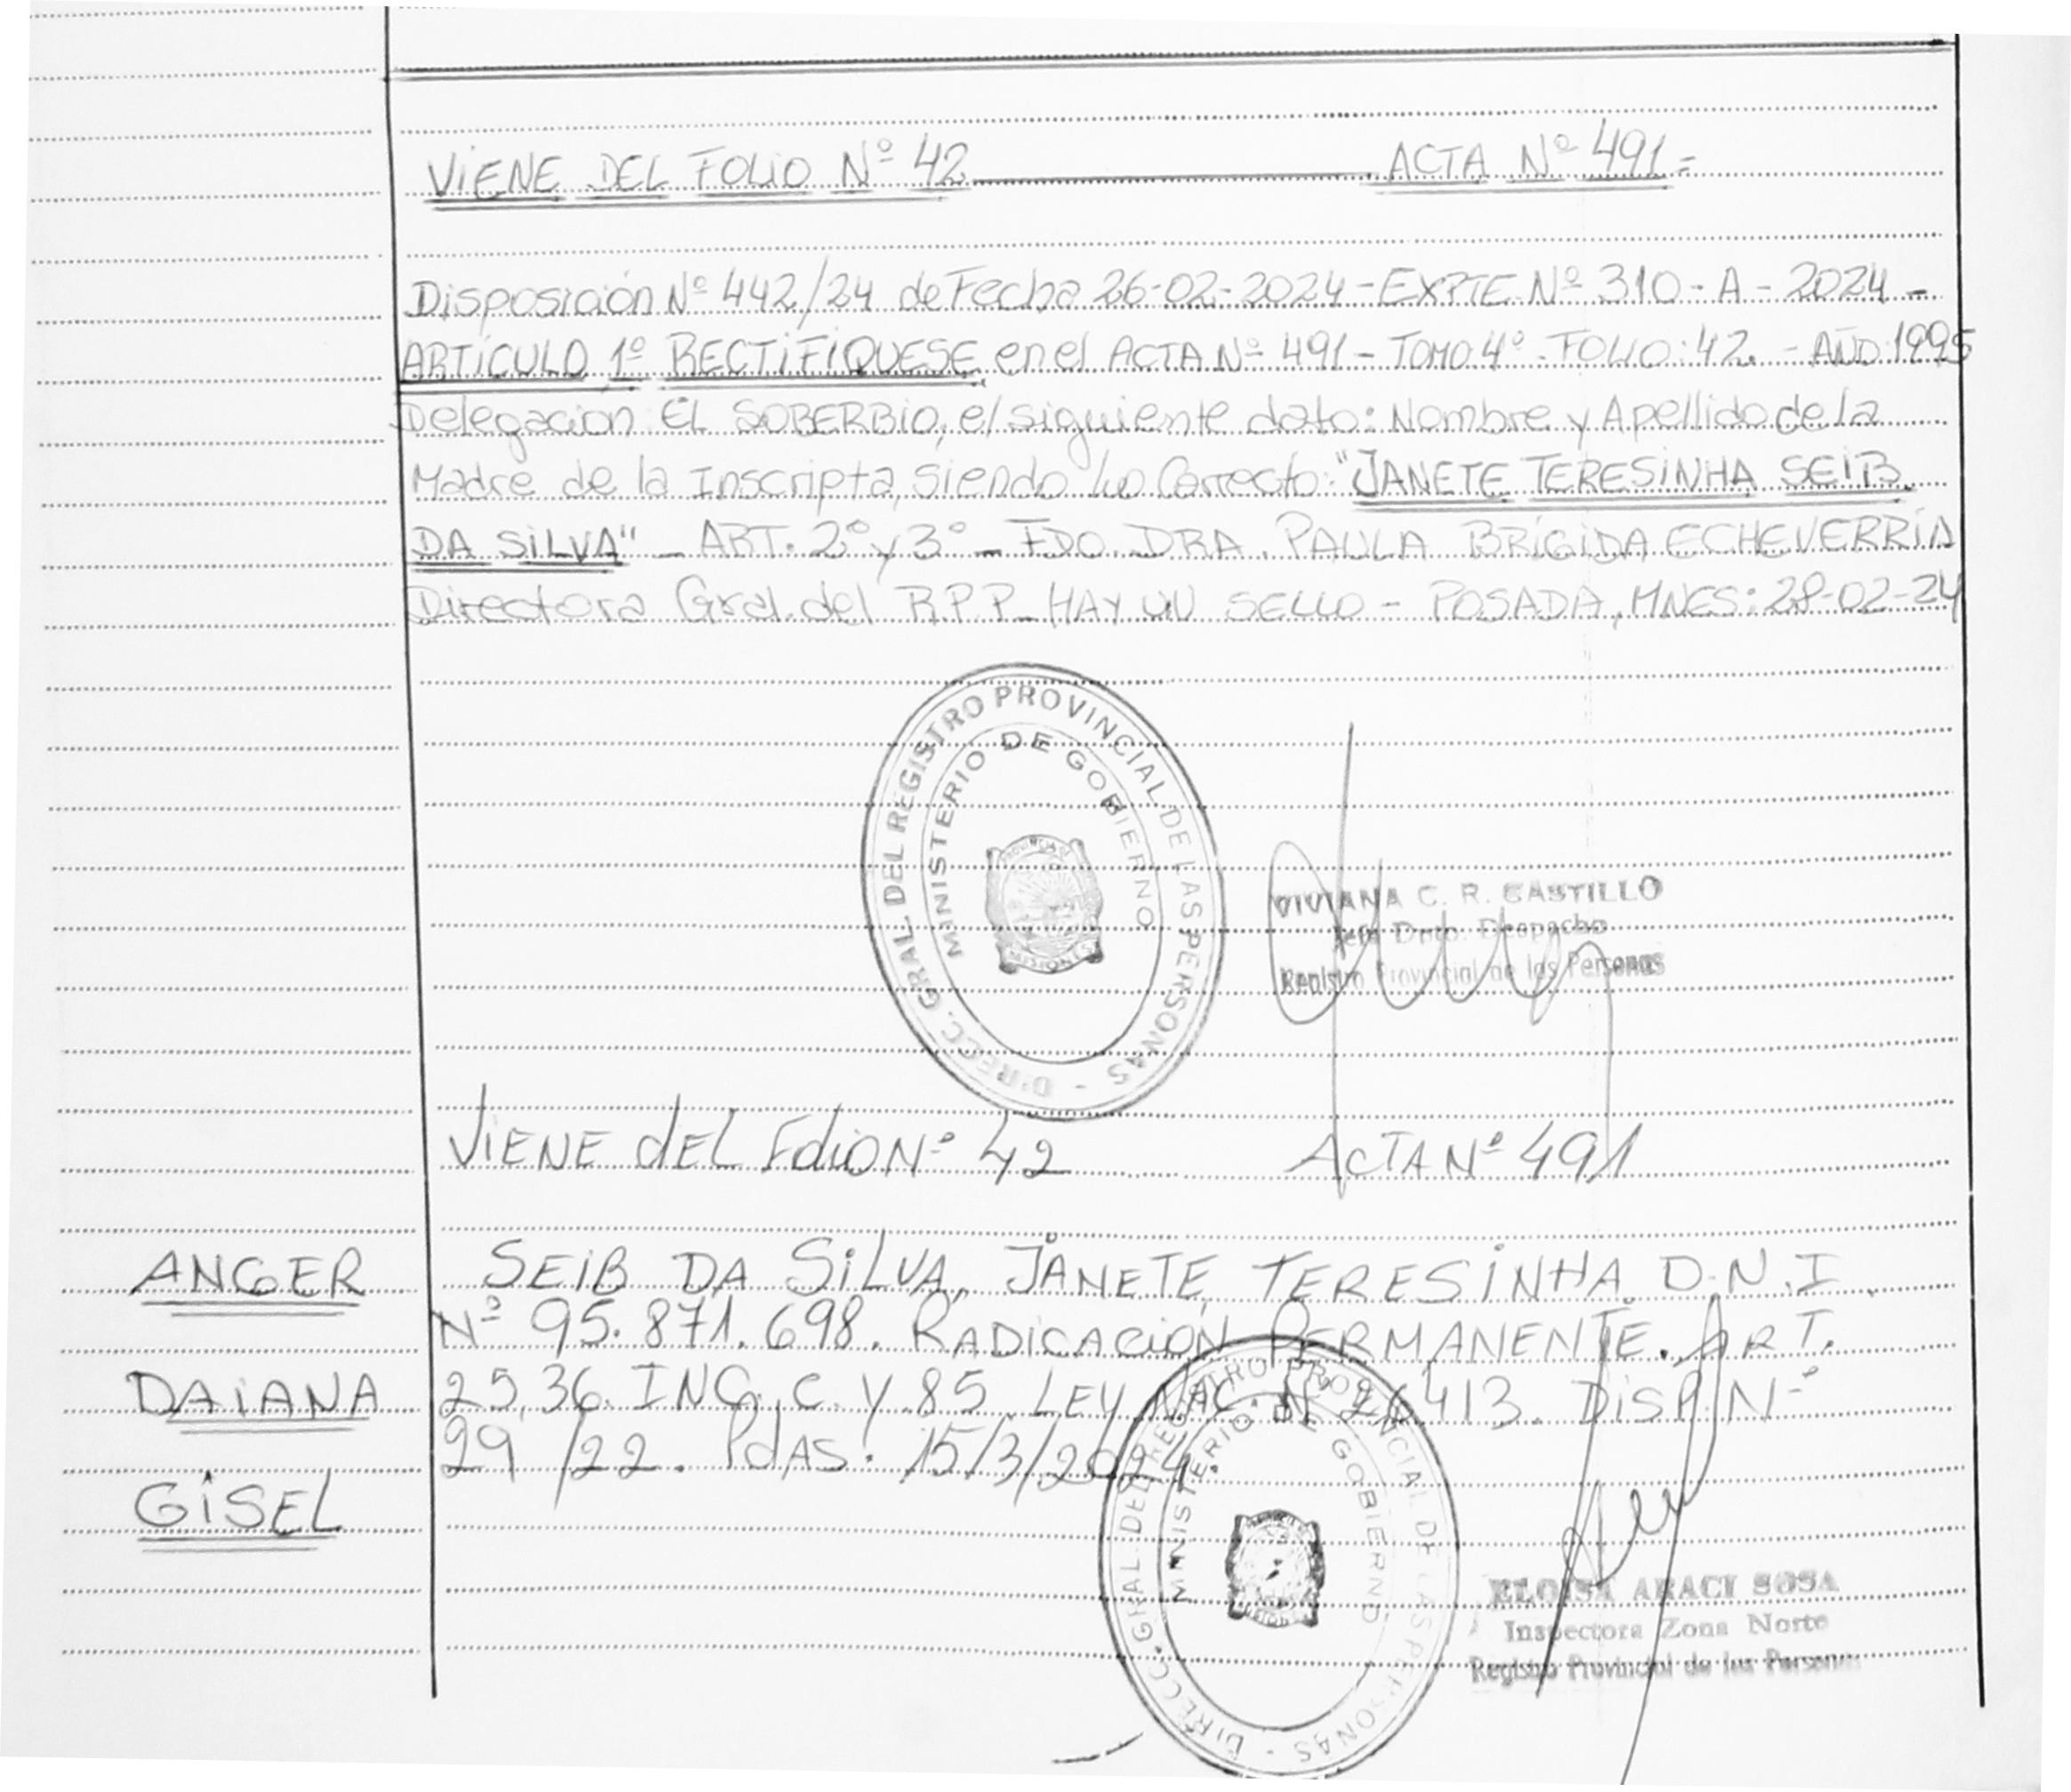 VIENE DEL FOLIO Nº 42 ACTA Nº 491=
Disposición Nº 442/24 de Fecha 26-02-2024-EXPTE Nº 310-A-2024-
ARTÍCULO 1º RECTIFÍQUESE en el ACTA Nº 491- TOMO 4º-FOLIO: 42.- AÑO 1995
Delegación EL SOBERBIO, el siguiente dato: Nombre y Apellido de la
Madre de la Inscripta, siendo Lo Correcto: "JANETE TERESINHA SEIB
DA SILVA" - ART. 2º y 3º - FDO. DRA. PAULA BRÍGIDA ECHEVERRÍA
Directora Gral. del R.P.P- HAY UN SELLO - POSADA, MNES: 28-02-24
DIRECC. GRAL. DEL REGISTRO PROVINCIAL DE LAS PERSONAS -
MINISTERIO DE GOBIERNO
PROVINCIA DE
MISIONES
VIVIANA C. R. CASTILLO
Jefa Dpto. Despacho
Registro Provincial de las Personas
VIENE dEL Folio Nº 42 ACTA Nº 491
ANGER
DAIANA
GISEL
SEIB DA SILVA, JANETE TERESINHA D.N.I
Nº 95.871.698. RADICACIÓN PERMANENTE. ART.
25,36. INC. C. Y 85 LEY NAC Nº 26413. DISP. Nº
29/22. PdAS: 15/3/2024.
DIRECC. GRAL. DEL REGISTRO PROVINCIAL DE LAS PERSONAS -
MINISTERIO DE GOBIERNO
ELOISA ARACI SOSA
Inspectora Zona Norte
Registro Provincial de las Personas